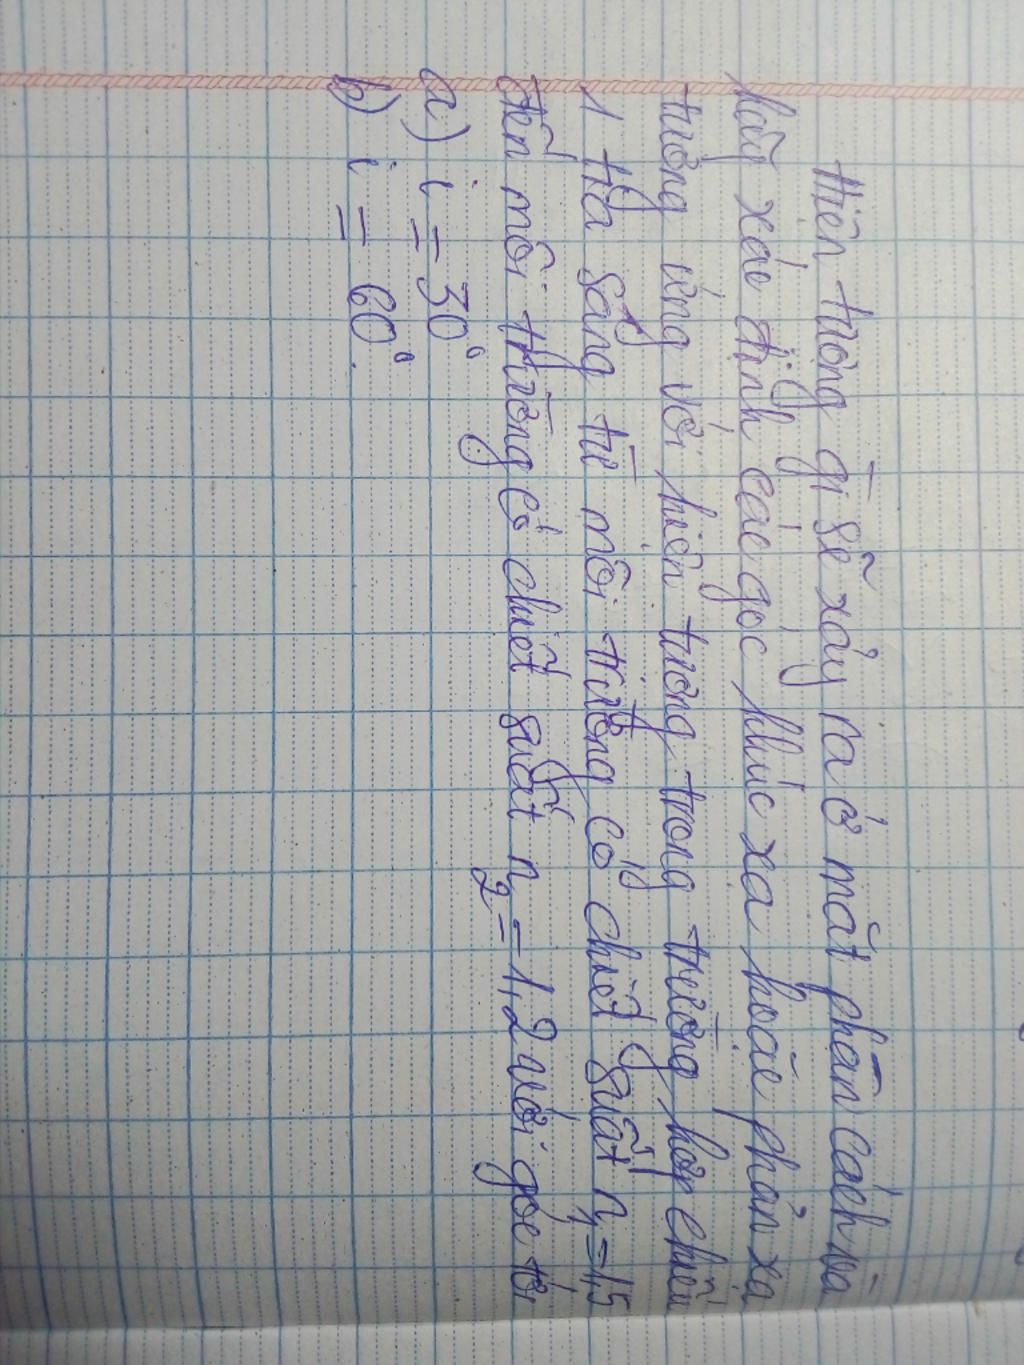 Hiện tượng gì sẽ xảy ra ở mặt phân cách và
hãy xác định các góc khúc xạ hoặc phản xạ
tương ứng với hiện tượng trong trường hợp chiếu
1 tia sáng từ môi trường có chiết suất n₁ = 1,5
đến môi trường có chiết suất n₂ = 1,2 với góc tới
a) i = 30°
b) i = 60°.